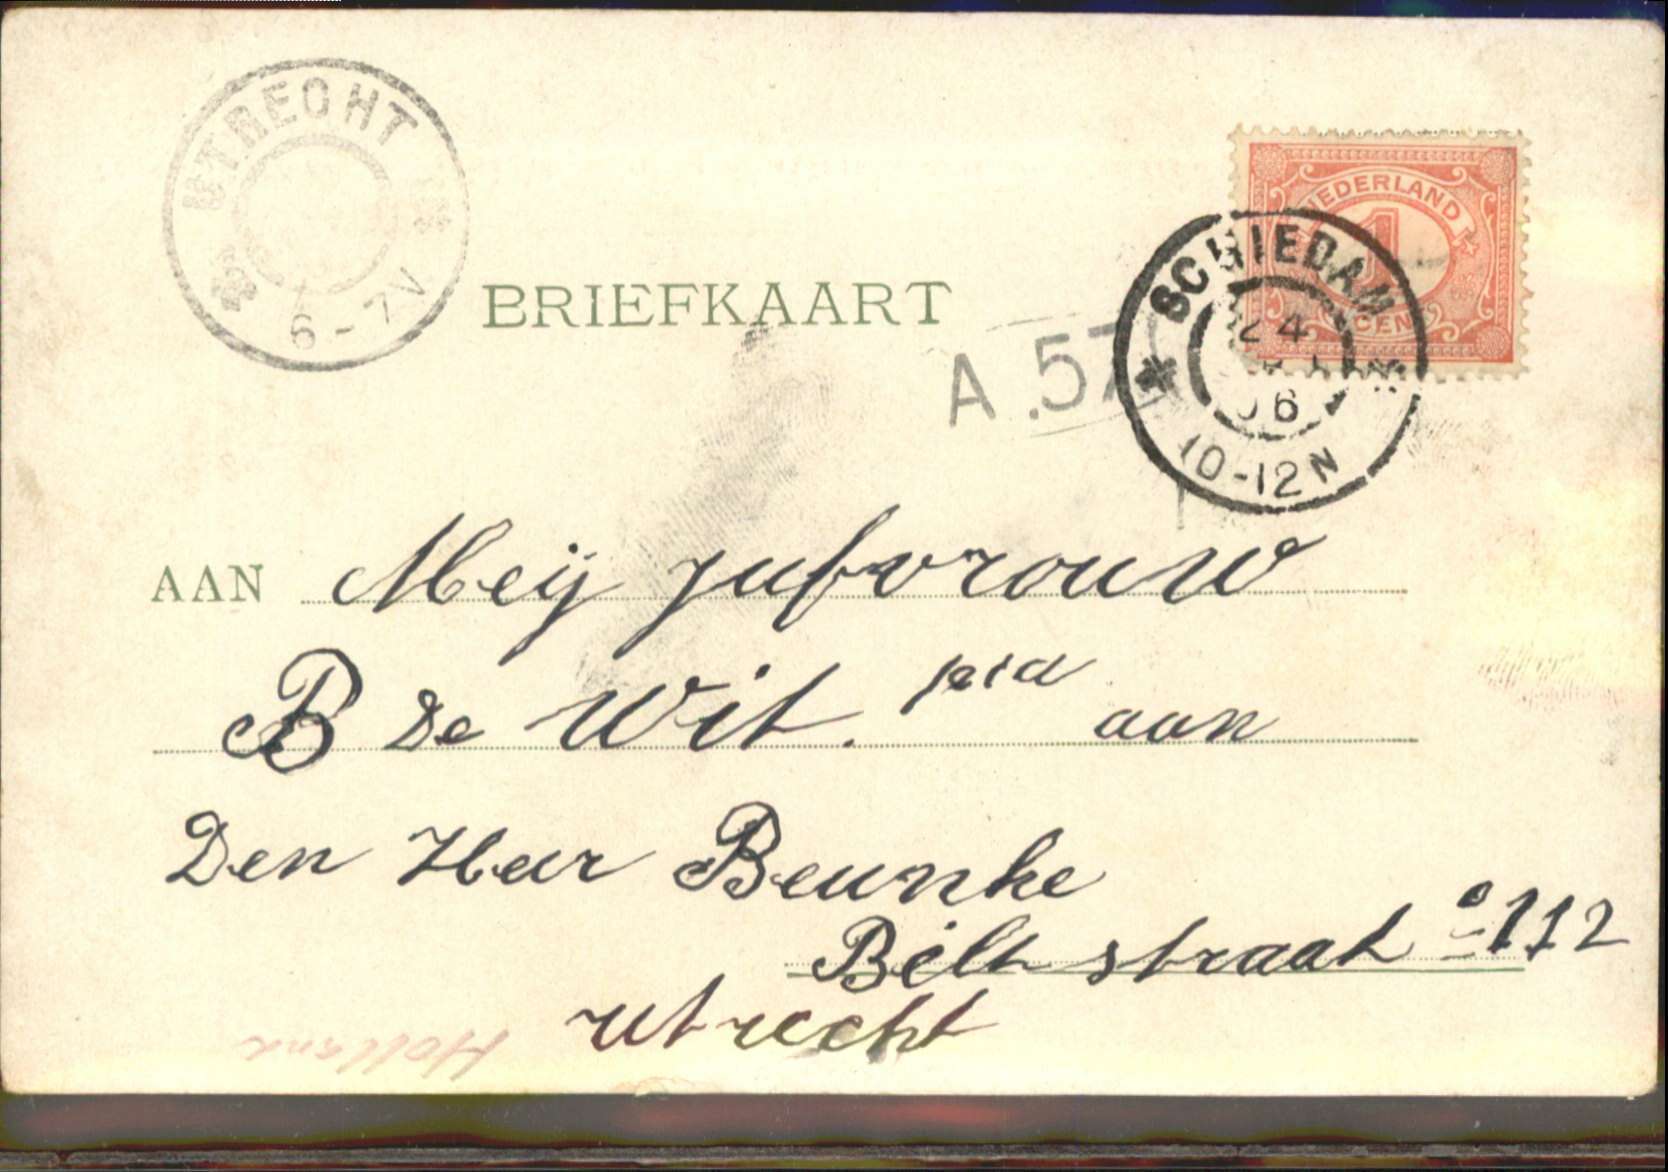 UTRECHT
6-7V
BRIEFKAART
A.57
NEDERLAND
1
CENT
SCHIEDAM
24
06
10-12N
AAN Meij jufvrouw
B de Wit. p/a aan
Den Heer Beunke
Bilt straat 112
Utrecht
Holland